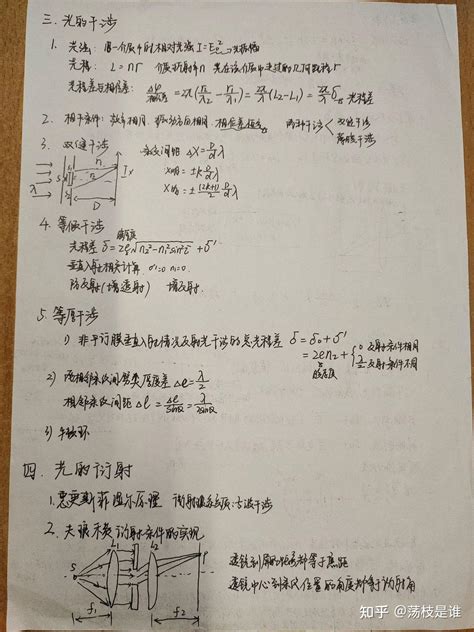 三. 光的干涉
1. 光强: 同一介质中的相对光强 I=E₀² →光振幅
光程: L=nr 介质折射率n 光在该介质中走过的几何路程r
光程差与相位差: Δφ 相位差 = 2π(r₂/λ₂ - r₁/λ₁) = 2π/λ (L₂-L₁) = 2π/λ δ 光程差
2. 相干条件: 频率相同, 振动方向相同, 相位差恒定 两种干涉 双缝干涉 薄膜干涉
3. 双缝干涉 条纹间距 Δx = D/d λ
x明 = ±k D/d λ
x暗 = ± (2k+1)/2 D/d λ
λ S r₁ r₂ x D
4. 等倾干涉
光程差 δ = 2e√(n₂²-n₁²sin²i) + δ'
垂直入射相关计算
防反射(增透射) 增反射
5. 等厚干涉
1) 非平行膜垂直入射情况反射光干涉的总光程差 δ = δ₀+δ'
= 2en₂ + { 0 反射条件相同 λ/2 反射条件不同
膜厚度
2) 两相邻条纹间劈尖厚度差 Δe = λ/2
相邻条纹间距 Δl = Δe/sinα = λ/2sinα
3) 牛顿环
四. 光的衍射
1. 惠更斯菲涅尔原理 衍射
2. 夫琅禾费衍射条件的实现
S L₁ L₂ P
f₁ f₂
透镜到屏的距离都等于焦距
透镜中心到条纹位置的角度都等于衍射角
知乎 @荡枝是谁